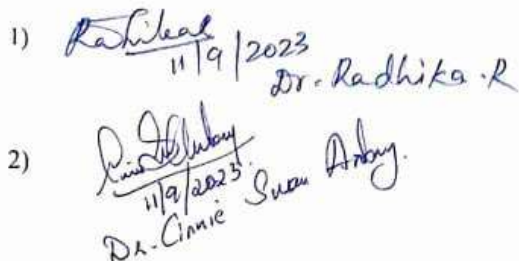 1) Radhika R
11/9/2023
Dr. Radhika . R
2)
11/9/2023.
Dr. Cinnie Susan Antony.